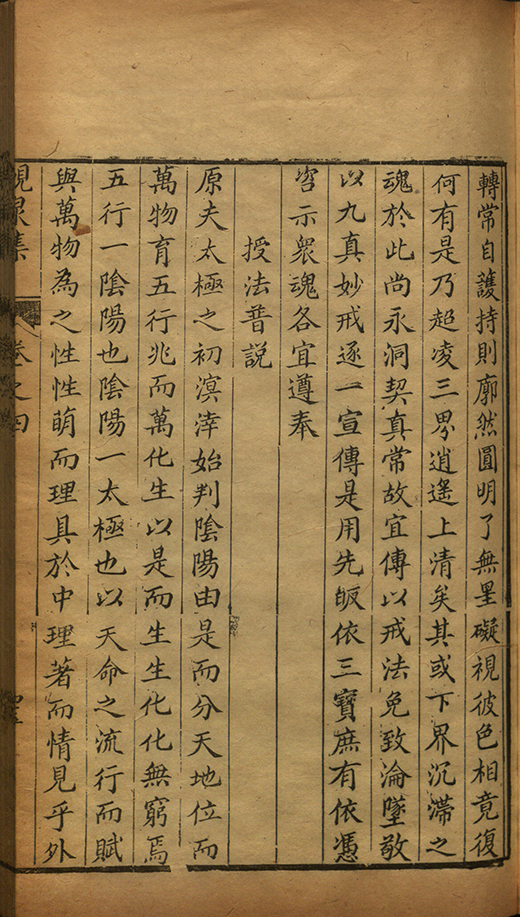 轉常自護持則廓然圓明了無罣礙視彼色相竟復
何有是乃超凌三界逍遙上清矣其或下界沉滯之
魂於此尚永洞契真常故宜傳以戒法免致淪墜敬
以九真妙戒逐一宣傳是用先皈依三寶庶有依憑
咨示衆魂各宜遵奉
授法普説
原夫太極之初溟涬始判陰陽由是而分天地位而
萬物育五行兆而萬化生以是而生生化化無窮焉
五行一陰陽也陰陽一太極也以天命之流行而賦
與萬物為之性性萌而理具於中理著而情見乎外
峴泉集 卷之四